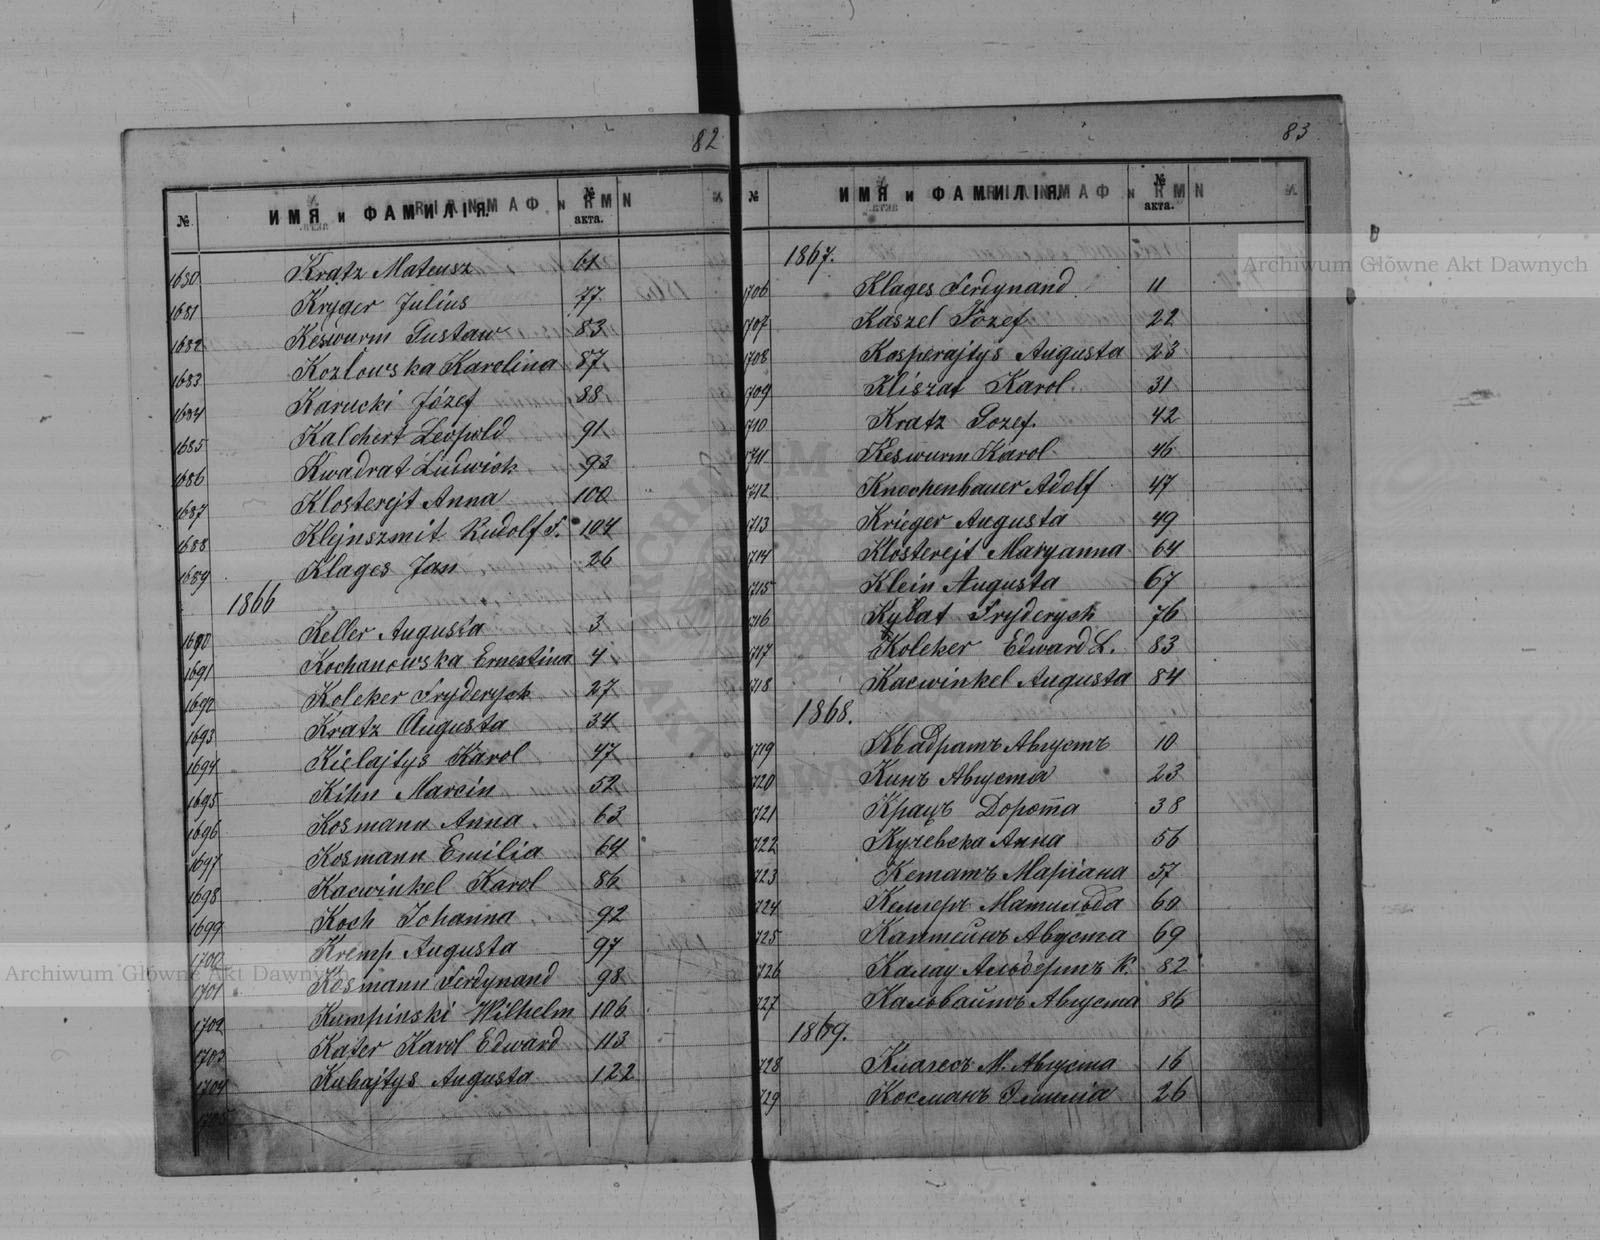 82
№ ИМЯ и ФАМИЛІЯ. № акта.
1680 Kratz Mateusz 61
1681 Kryger Julius 77
1682 Keswurm Gustaw 83
1683 Kozłowska Karolina 87
1684 Karucki Józef 88
1685 Kalchert Leopold 91
1686 Kwadrat Ludwich 93
1687 Klosterejt Anna 100
1688 Klejnszmit Rudolf F. 104
1689 Klages Jan 26
1866
1690 Keller Augusta 3
1691 Kochanowska Ernestina 4
1692 Koleker Fryderych 27
1693 Kratz Augusta 34
1694 Kiełajtys Karol 47
1695 Kihn Marcin 52
1696 Kosmann Anna 63
1697 Kosmann Emilia 64
1698 Kacwinkel Karol 86
1699 Koch Johanna 92
1700 Kremp Augusta 97
1701 Kosmann Ferdynand 98
1702 Kumpinski Wilhelm 106
1703 Kater Karol Edward 113
1704 Kubajtys Augusta 122
1705
83
№ ИМЯ и ФАМИЛІЯ. № акта.
1867.
1706 Klages Ferdynand 11
1707 Kaszel Józef 22
1708 Kosperajtys Augusta 23
1709 Kliszat Karol 31
1710 Kratz Jozef. 42
1711 Keswurm Karol 46
1712 Knochenbauer Adolf 47
1713 Krieger Augusta 49
1714 Klosterejt Maryanna 64
1715 Klein Augusta 67
1716 Kybat Fryderych 76
1717 Koleker Edward L. 83
1718 Kacwinkel Augusta 84
1868.
1719 Квадратъ Августъ 10
1720 Кинъ Августа 23
1721 Крацъ Дорота 38
1722 Кучевска Анна 56
1723 Кетатъ Маріана 57
1724 Келлеръ Матильда 60
1725 Каптейнъ Августа 69
1726 Калау Альбертъ К. 82
1727 Кальвайтъ Августа 86
1869.
1728 Клагесъ М. Августа 16
1729 Косманъ Эмилія 26
Archiwum Główne Akt Dawnych
Archiwum Główne Akt Dawnych